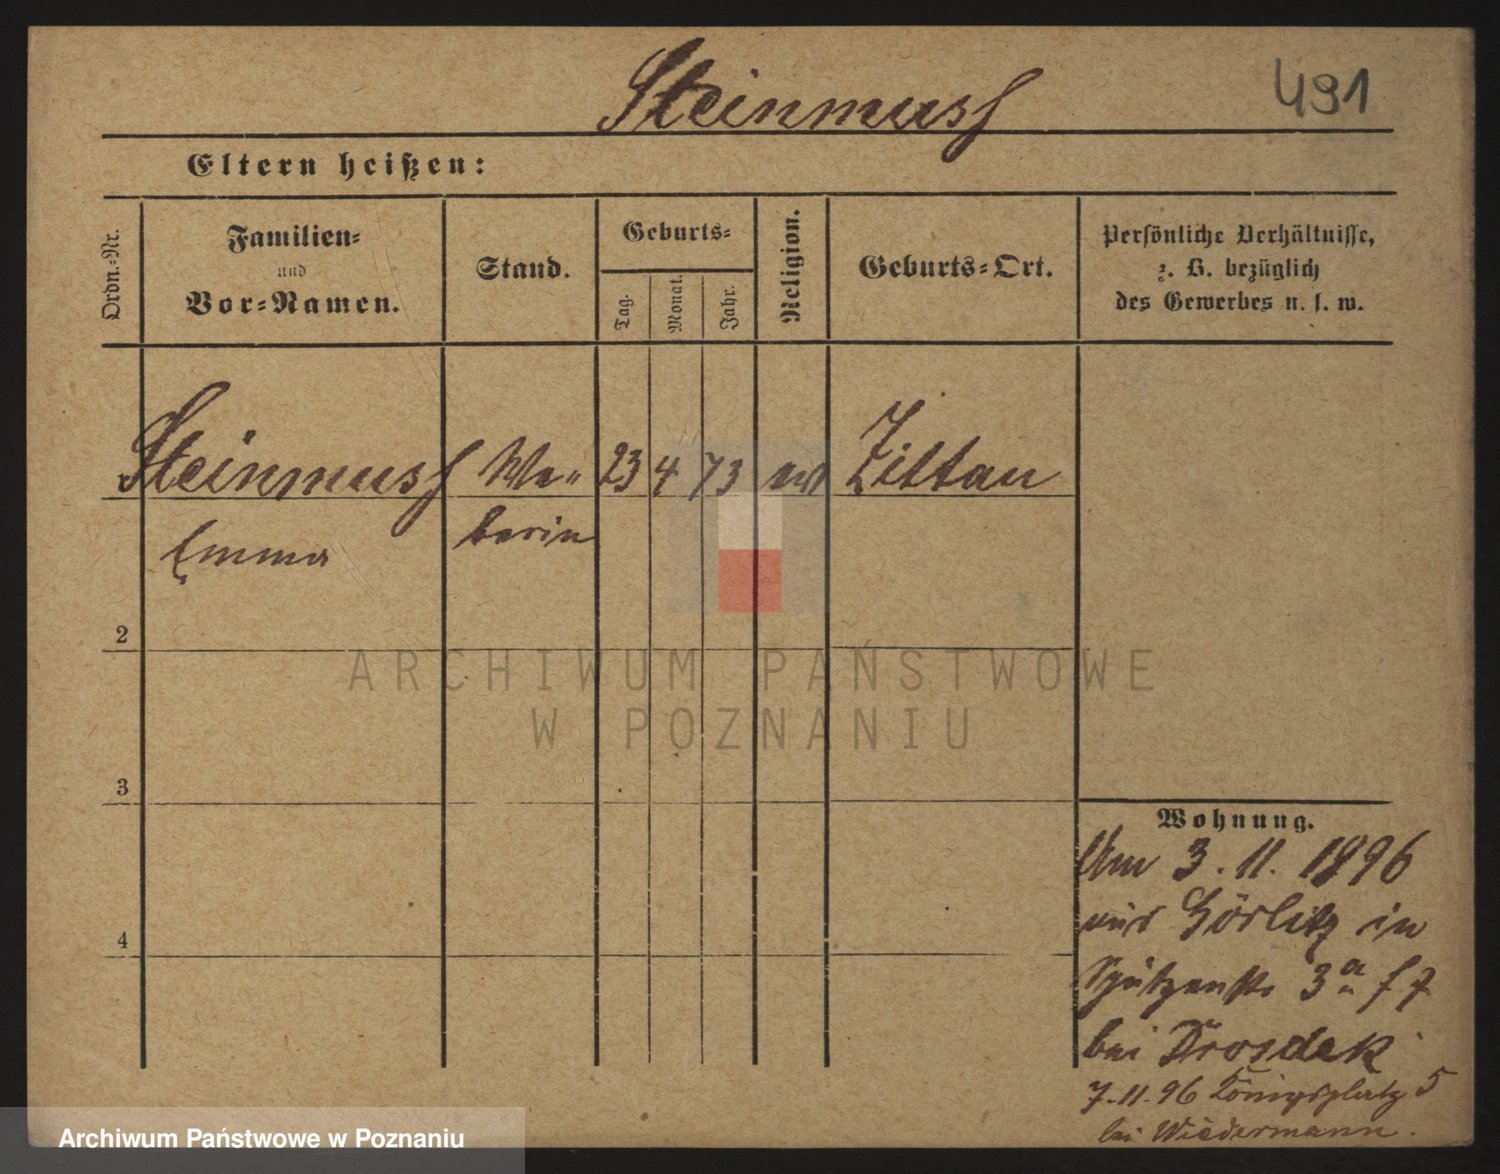 Steinmuss
491
Eltern heißen:
Ordn.-Nr.
Familien-
und
Vor-Namen.
Stand.
Geburts-
Tag.
Monat.
Jahr.
Religion.
Geburts-Ort.
Persönliche Verhältnisse,
z. B. bezüglich
des Gewerbes u. s. w.
Steinmuss We- 23 4 73 ev Zittau
Emma berin
2
ARCHIWUM PAŃSTWOWE
W POZNANIU
3
Wohnung.
Am 3. 11. 1896
aus Görlitz in
Schützenstr 3a
bei Drozdek
4
7.11.96 Königsplatz 5
bei Wiedermann.
Archiwum Państwowe w Poznaniu